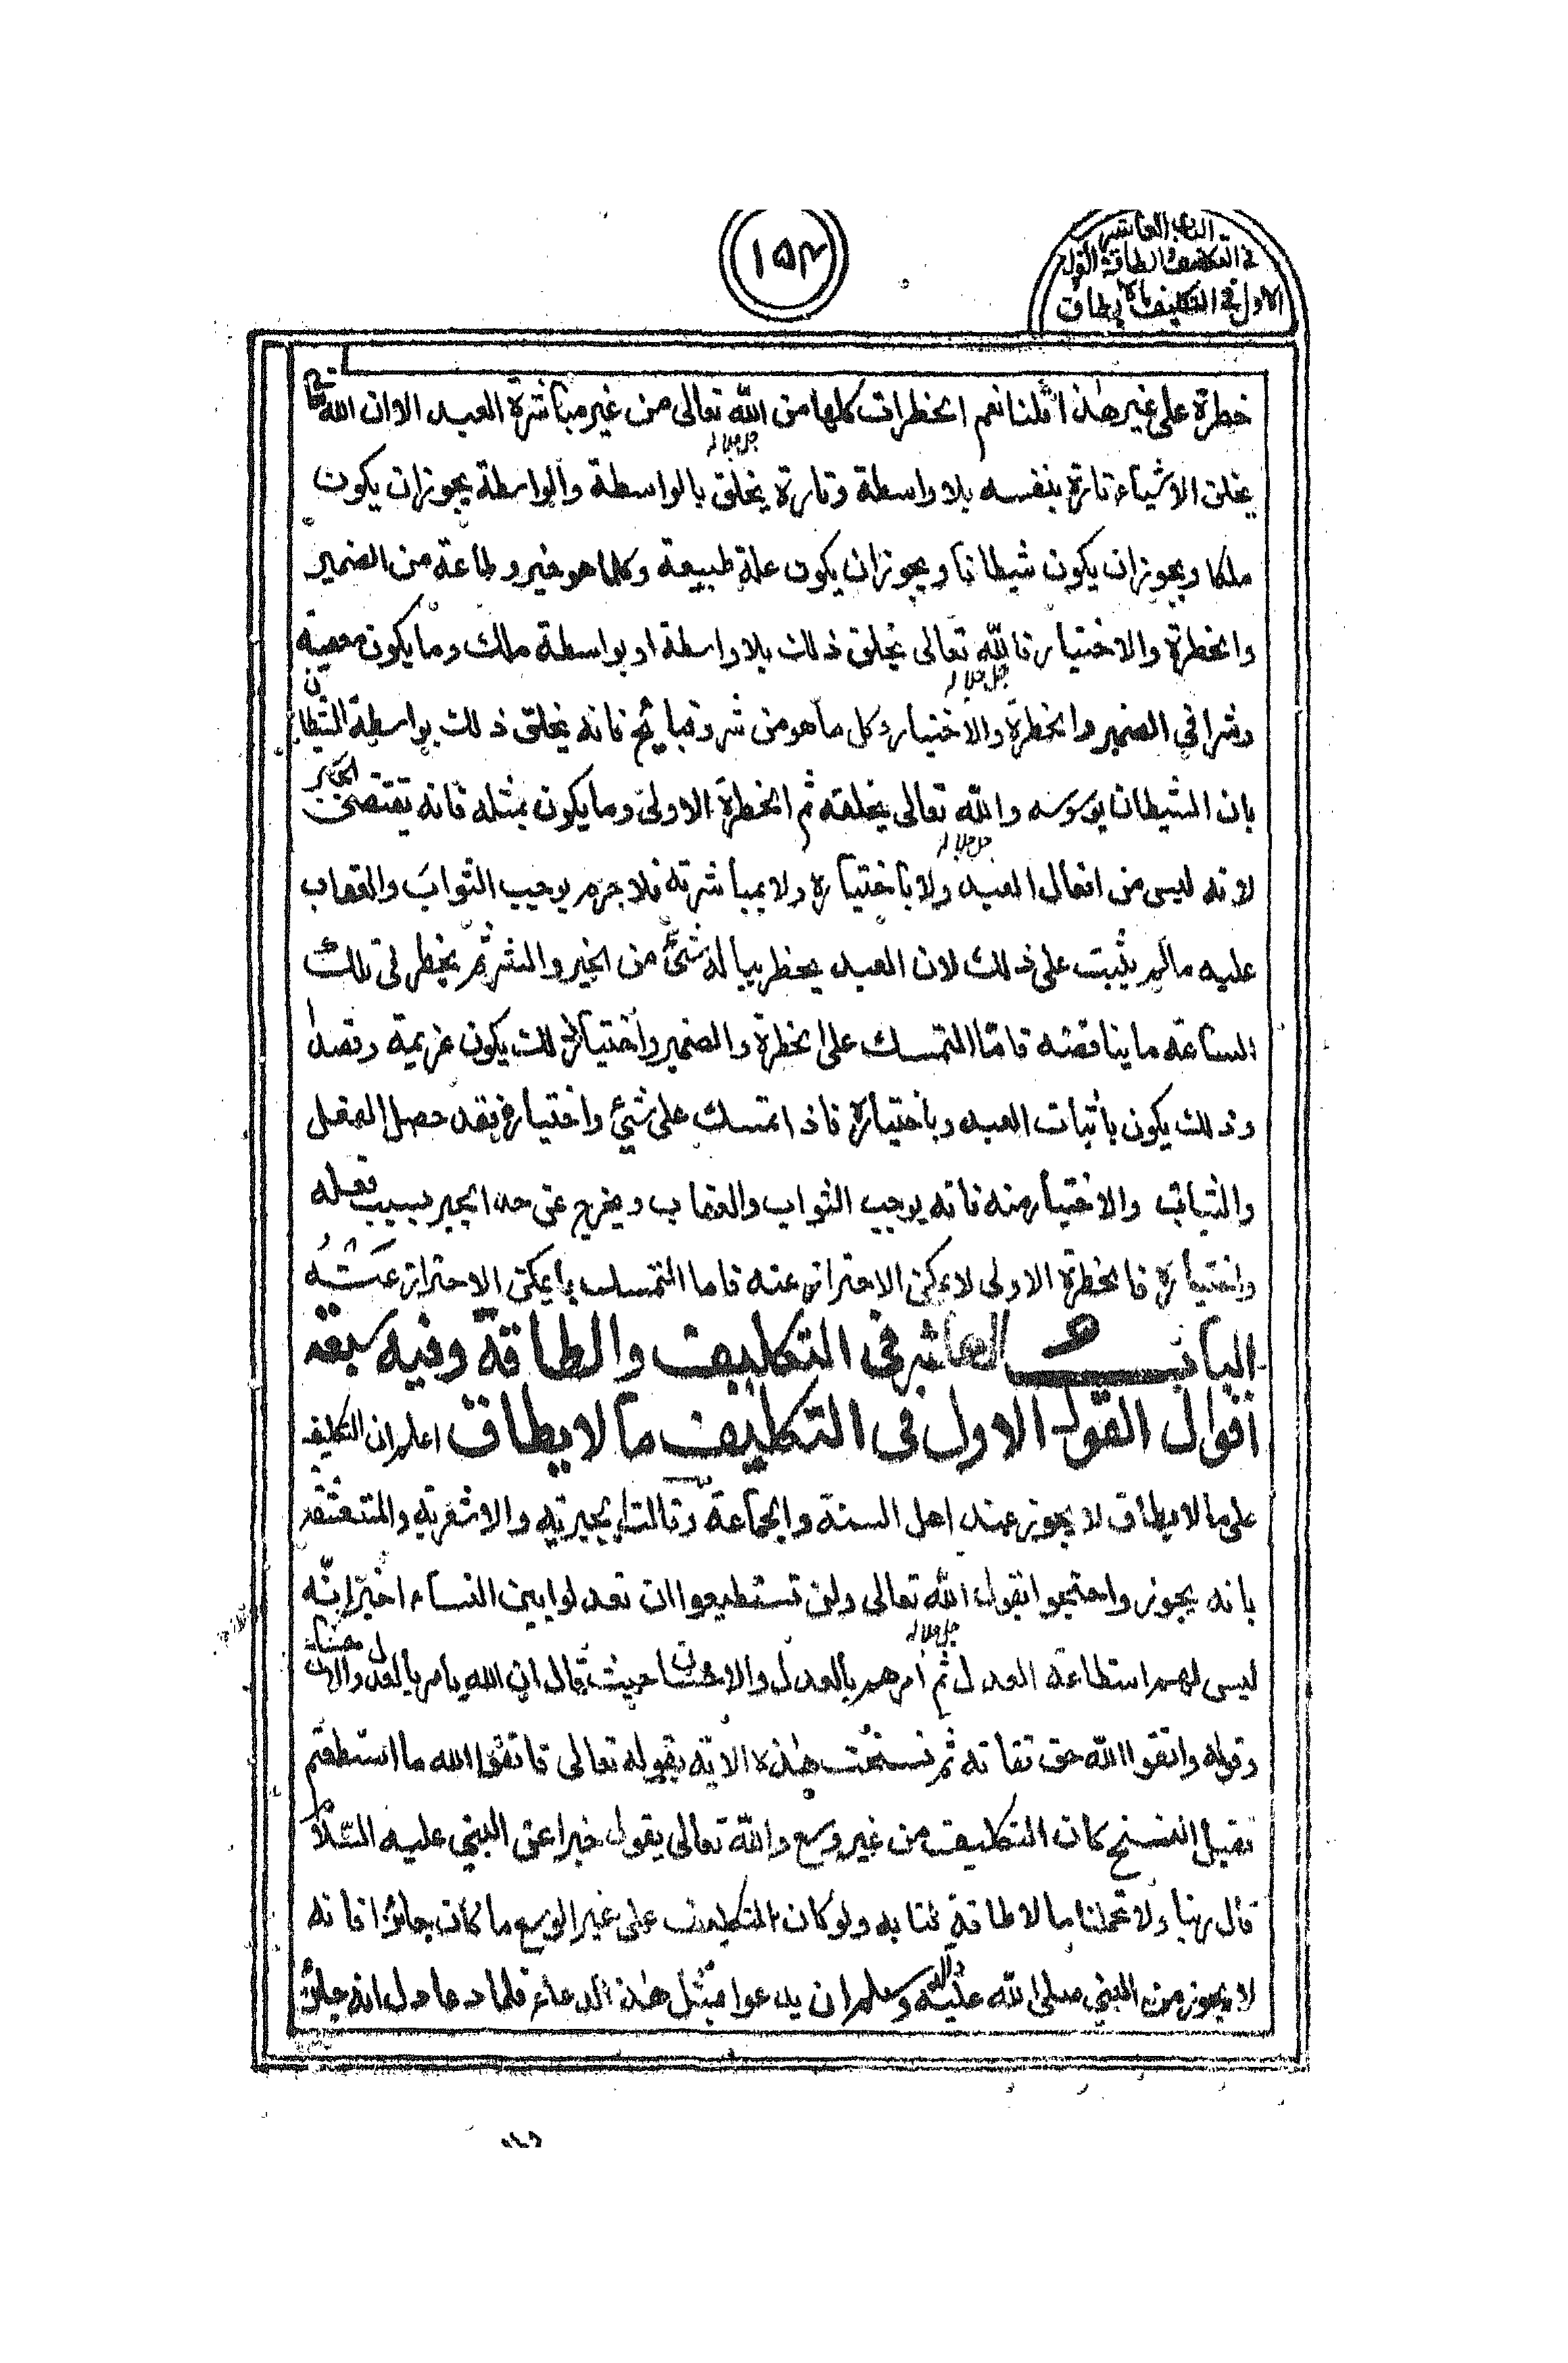 الباب العاشر
في التكليف والطاقة القول
الاول في التكليف مالا يطاق
١٥٣
خطرة على غير هٰذا قلنا نعم الخطرات كلها من الله تعالى من غير مباشرة العبد الا ان الله تعالى
جل جلاله
يخلق الاشياء تارة بنفسه بلا واسطة وتارة يخلق بالواسطة والواسطة يجوز ان يكون
ملكا ويجوز ان يكون شيطانا ويجوز ان يكون علة طبيعة وكلما هو خير وطاعة من الضمير
والخطرة والاختيار فالله تعالى يخلق ذلك بلا واسطة او بواسطة ملك وما يكون معصية
جل جلاله
وشرا في الضمير والخطرة والاختيار وكل ما هو من شر وقبائح فانه يخلق ذلك بواسطة الشيطان
بان الشيطان يوسوسه والله تعالى يخلقه ثم الخطرة الاولى وما يكون بمثله فانه يقتضى الخير
جل جلاله
لانه ليس من افعال العبد ولا باختياره ولا بمباشرته فلا جرم يوجب الثواب والعقاب
عليه ما لم يثبت على ذلك لان العبد يخطر بباله شئ من الخير والشر ثم يخطر فى تلك
الساعة ما يناقضه فامّا التمسك على الخطرة والضمير واختيار ذلك يكون عزيمة وقصدا
وذلك يكون باثبات العبد وباختياره فاذا تمسك على شيئ واختياره فقد حصل الفعل
والثبات والاختيار منه فانه يوجب الثواب والعقاب ويخرج عن حد الجبر بسبب فعله
واختياره فالخطرة الاولى لا يمكن الاحتراز عنه فاما التمسك بها يمكن الاحتراز عنه
الباب العاشر فى التكليف والطاقة وفيه سبعة
اقوال القول الاول فى التكليف ما لا يطاق اعلم ان التكليف
على ما لا يطاق لا يجوز عند اهل السنة والجماعة وقالت الجبرية والاشعرية والمتقشفة
بانه يجوز واحتجوا بقول الله تعالى ولن تستطيعوا ان تعدلوا بين النساء اخبر انه
جل جلاله
ليس لهم استطاعة العدل ثم امرهم بالعدل والاحسان حيث قال ان الله يامر بالعدل والاحسان
وقوله واتقوا الله حق تقاته ثم نسخت هٰذه الآية بقوله تعالى فاتقوا الله ما استطعتم
فقبل النسخ كان التكليف من غير وسع والله تعالى يقول خبرا عن النبي عليه السّلام
قال ربنا ولا تحملنا ما لا طاقة لنا به ولو كان التكليف على غير الوسع ما كان جائزا فانه
لا يجوز من النبي صلى الله عليه واله وسلم ان يدعوا مثل هٰذا الدعاء فلما دعا دل انه جائز